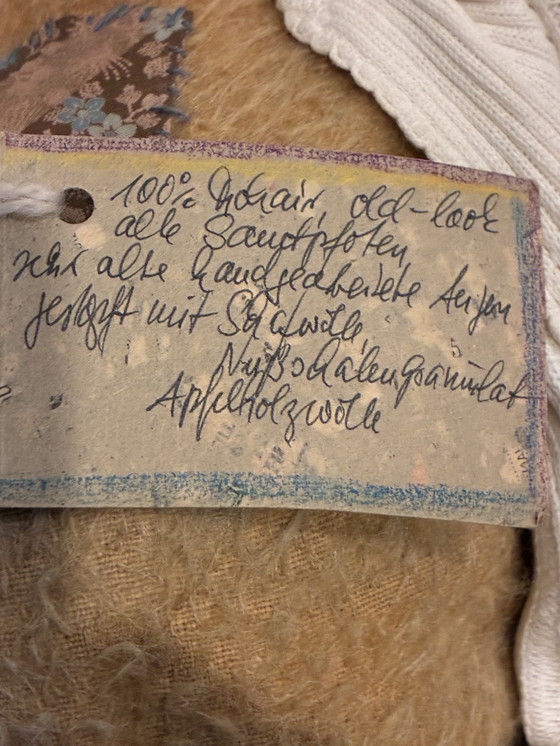 100% Mohair, old-look
alte Samtpfoten,
sehr alte handgearbeitete Augen
gestopft mit Schafwolle,
Nußschalengranulat
Apfelholzwolle